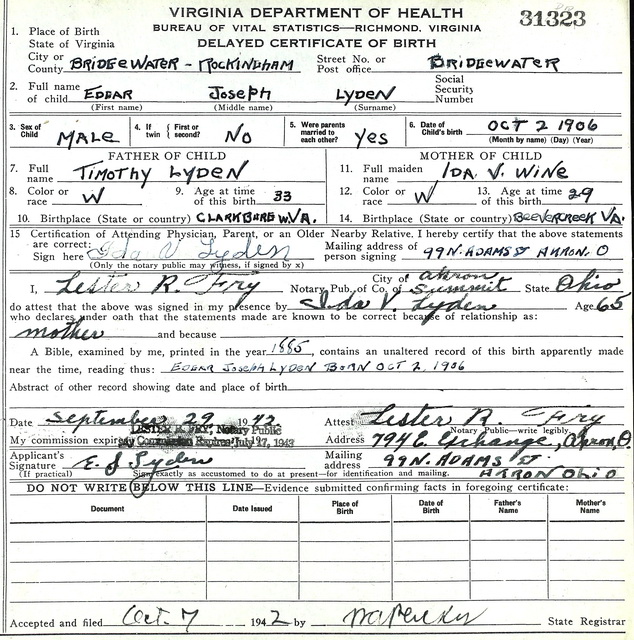 VIRGINIA DEPARTMENT OF HEALTH
31323
BUREAU OF VITAL STATISTICS—RICHMOND, VIRGINIA
DELAYED CERTIFICATE OF BIRTH
1. Place of Birth
State of Virginia
City or County BRIDGEWATER - ROCKINGHAM Street No. or Post office BRIDGEWATER
2. Full name of child EDGAR JOSEPH LYDEN Social Security Number
(First name) (Middle name) (Surname)
3. Sex of Child MALE 4. If twin { First or second? NO 5. Were parents married to each other? YES 6. Date of Child's birth OCT 2 1906
(Month by name) (Day) (Year)
FATHER OF CHILD MOTHER OF CHILD
7. Full name TIMOTHY LYDEN 11. Full maiden name IDA V. WINE
8. Color or race W 9. Age at time of this birth 33 12. Color or race W 13. Age at time of this birth 29
10. Birthplace (State or country) CLARKBURG W.VA. 14. Birthplace (State or country) BEEVERCREEK VA.
15 Certification of Attending Physician, Parent, or an Older Nearby Relative, I hereby certify that the above statements
are correct:
Sign here Ida V Lyden Mailing address of person signing 99 N. ADAMS ST AKRON. O
(Only the notary public may witness, if signed by x)
I, Lester R. Fry Notary Pub. of City of Akron Co. of Summit State Ohio
do attest that the above was signed in my presence by Ida V. Lyden Age 65
who declares under oath that the statements made are known to be correct because of relationship as:
mother and because
A Bible, examined by me, printed in the year 1885, contains an unaltered record of this birth apparently made
near the time, reading thus: EDGAR JOSEPH LYDEN BORN OCT 2, 1906
Abstract of other record showing date and place of birth
Date September 29 1942 Attest Lester R. Fry
LESTER R. FRY, Notary Public Notary Public—write legibly.
My commission expires My Commission Expires July 17, 1943 Address 794 E. Exchange, Akron, O.
Applicant's Signature E. J Lyden Mailing address 99 N. ADAMS ST.
AKRON OHIO
(If practical) Sign exactly as accustomed to do at present—for identification and mailing.
DO NOT WRITE BELOW THIS LINE—Evidence submitted confirming facts in foregoing certificate:
Document Date Issued Place of Birth Date of Birth Father's Name Mother's Name
Accepted and filed Oct. 7 1942 by State Registrar